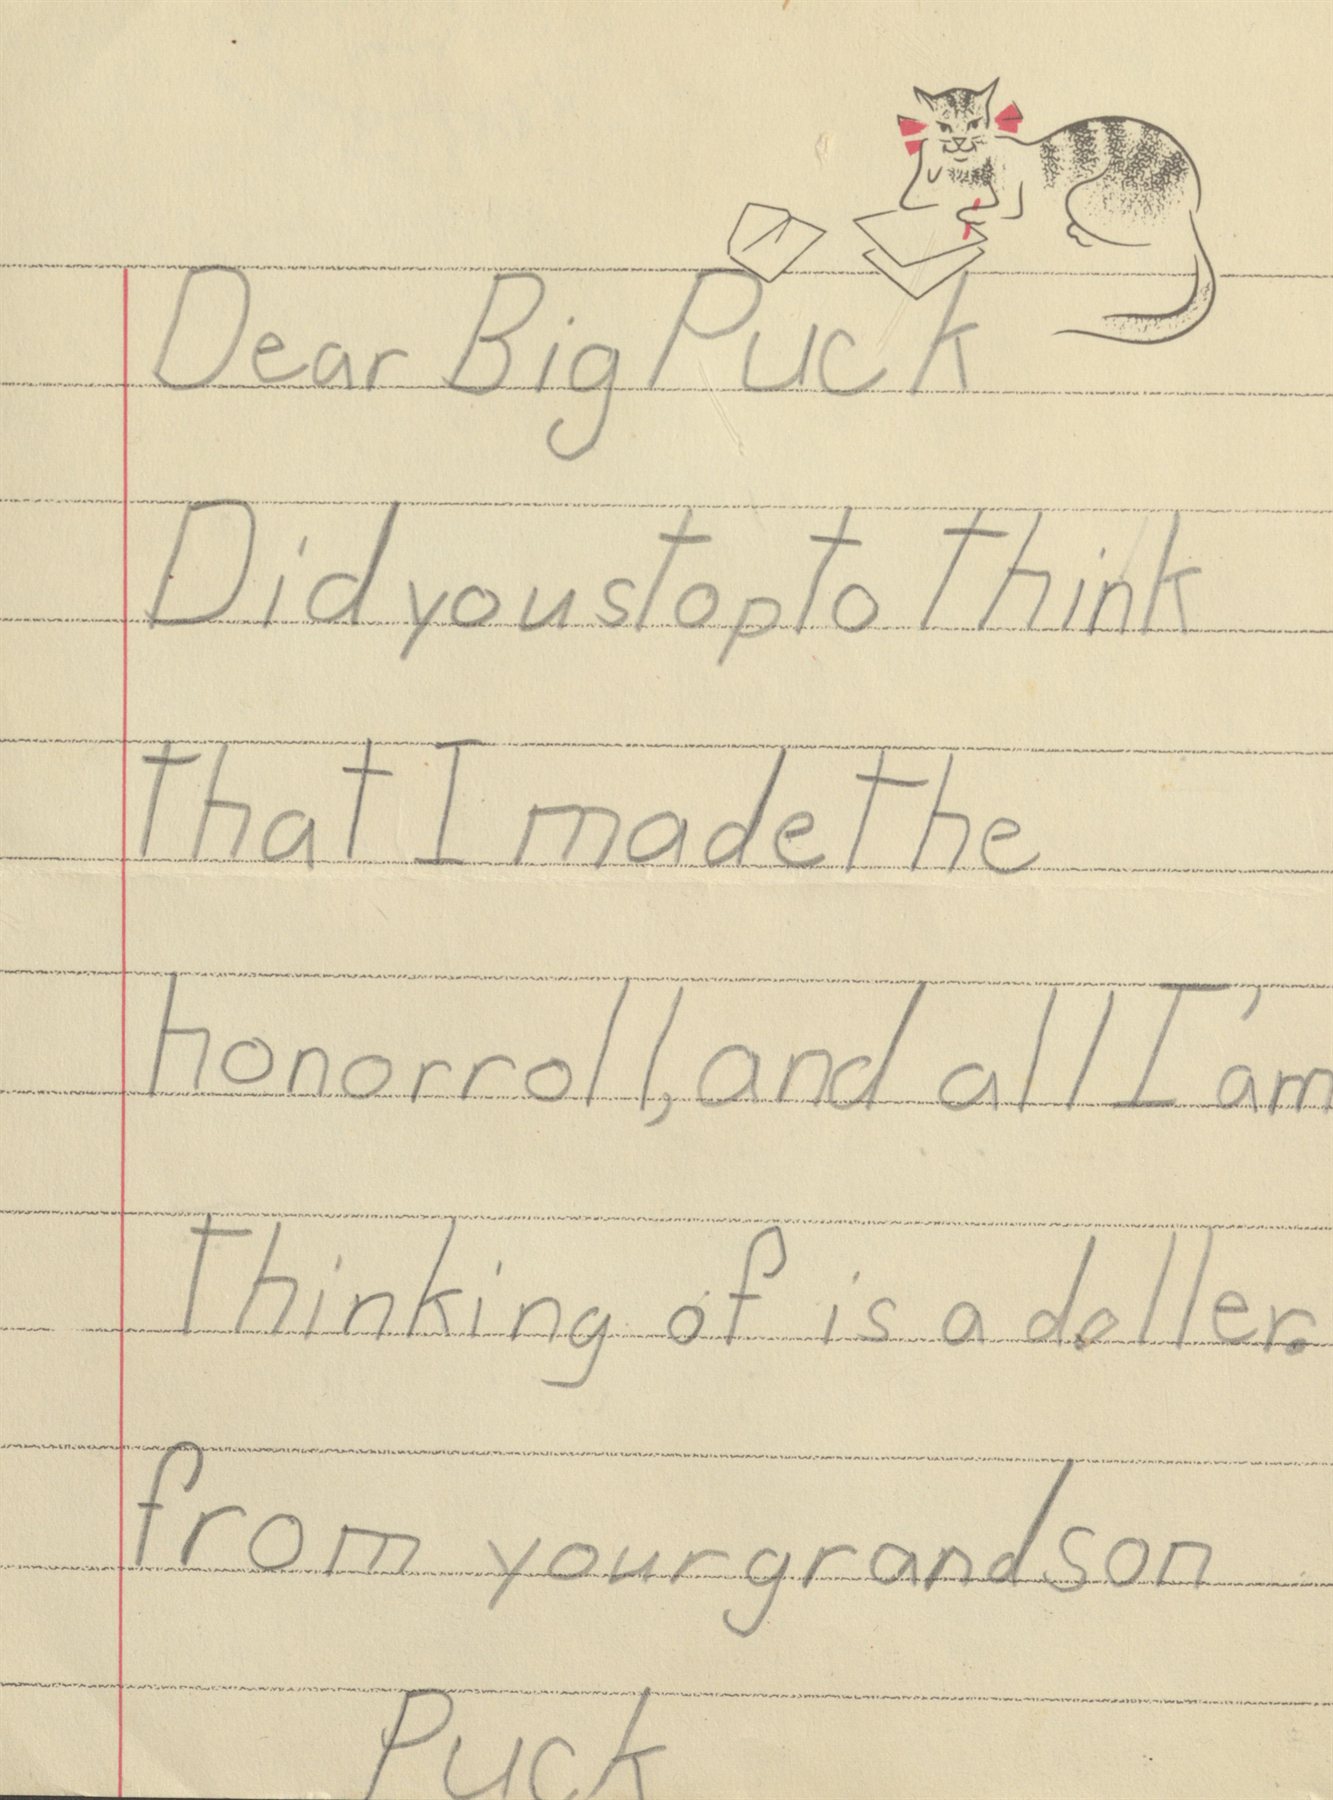 Dear Big Puck
Did you stop to think
that I made the
honor roll, and all I'am
thinking of is a doller.
from your grandson
Puck